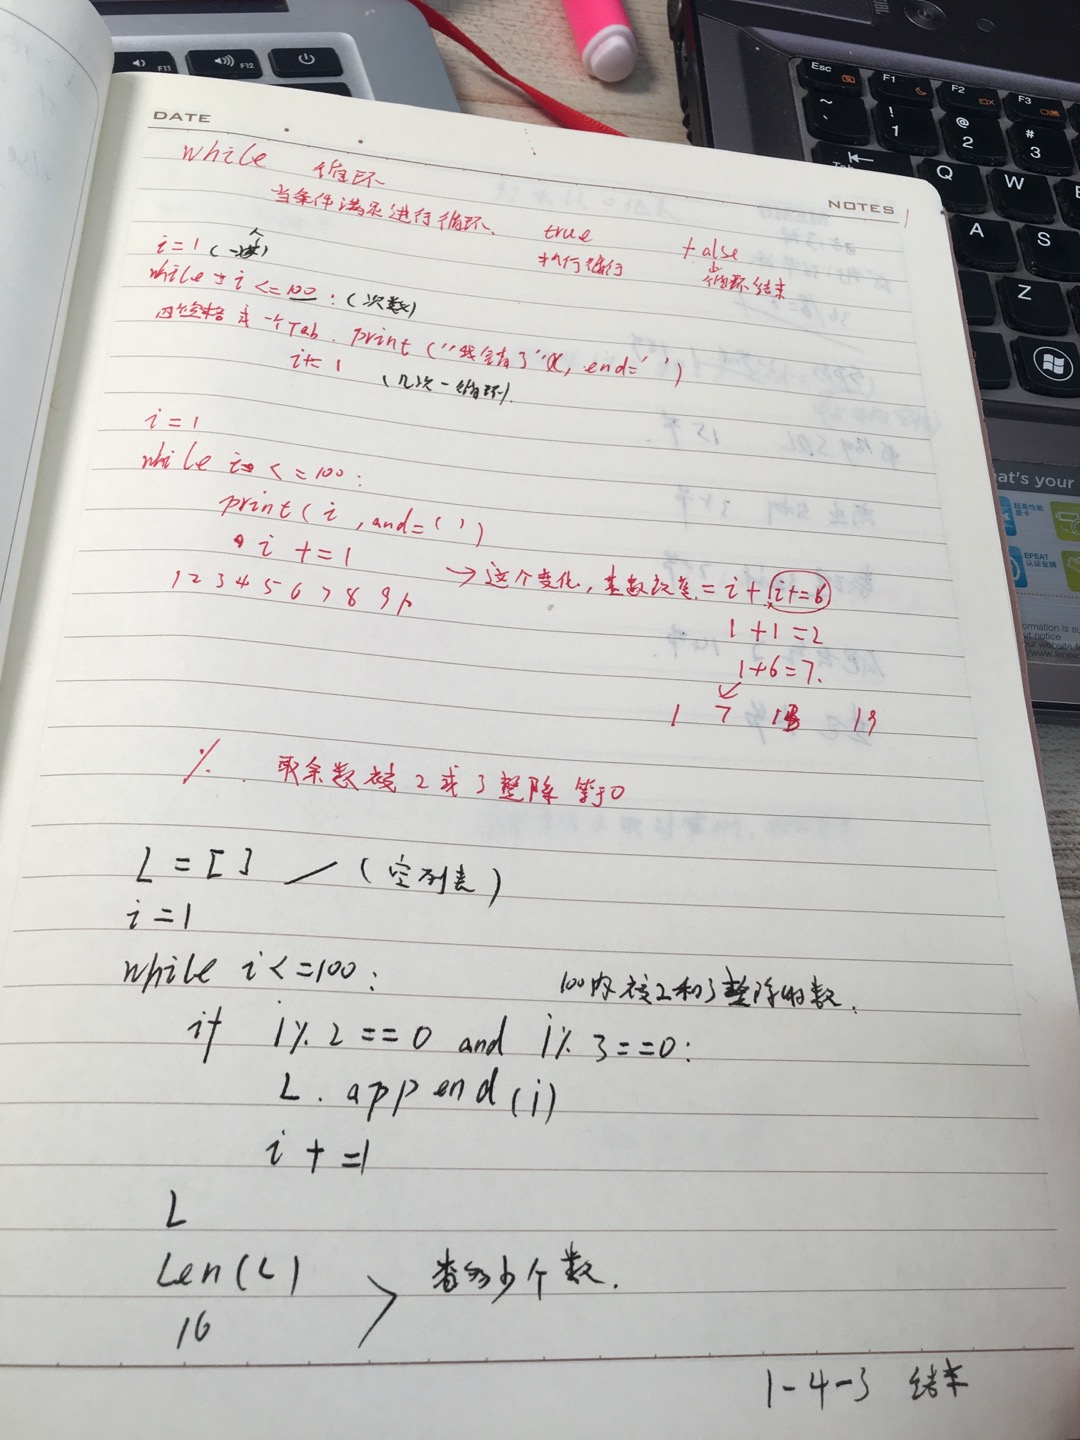 DATE
NOTES
while 循环
当条件满足进行循环. true false
执行循环 循环结束
i=1
while i <=100 : (次数)
四空格或一个Tab. print ("我错了", end=' ')
i+= 1 (几次一循环).
i=1
while i <=100 :
print( i , and=' ')
i +=1
1 2 3 4 5 6 7 8 9 10
→这个变化, 基数设差 = i + (i+=6)
1+1=2
1+6=7.
1 7 13 19
% . 取余数被2或3整除等于0
L = [] (空列表)
i=1
while i<=100 :
100内被2和3整除的数.
if i%2==0 and i%3==0:
L. append(i)
i +=1
L
Len(L)
16
查多少个数.
1-4-3 结束
Esc
F1
F2
F3
F11
F12
~
`
!
1
@
2
#
3
Tab
Q
W
A
S
Z
at's your
EPEAT
认证金牌